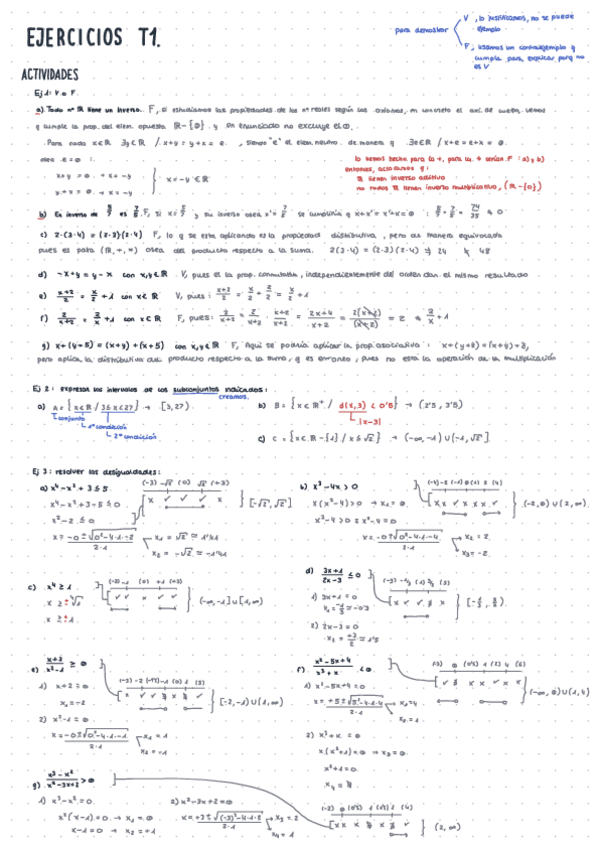 EJERCICIOS T1.
para demostrar
V, lo justificamos, no se puede ejemplo
F, usamos un contraejemplo q cumpla para explicar porq no es V
ACTIVIDADES
Ej 1: V o F.
a) Todo nº ℝ tiene un inverso. F, si estudiamos las propiedades de los nº reales según los axiomas,
y cumple la prop. del elem. opuesto ℝ-{0} y en enunciado no excluye el 0.
Para cada x∈ℝ ∃y∈ℝ / x+y = y+x = e, siendo "e" el elem. neutro de manera q ∃e∈ℝ / x+e = e+x =
e = 0 :
x+y = 0 → x = -y
y+x = 0 → x = -y
x = -y ∈ ℝ
lo hemos hecho para la +, para la
entonces,
ℝ tienen inverso aditivo
no todos ℝ tienen inverso multiplicativo, (ℝ-{0})
b) En inverso de 5/7 es 7/5. F, si x = 5/7 y su inverso
c) 2·(3·4) = (2·3)(2·4) F, lo q se esta aplicando es la propiedad distributiva, pero de manera equivocada
pues es para (ℝ,+,·) osea del producto respecto a la suma. 2(3·4) = (2·3)(2·4) ⇒ 24 ≠ 48
d) -x+y = y-x con x,y∈ℝ. V, pues es la prop. conmutativa, independientemente del orden dan el mismo resultado
e) x+2/2 = x/2 + 1 con x∈ℝ V, pues: x+2/2 = x/2 + 2/2 = x/2 + 1
f) 2/x+2 = 2/x + 1 con x∈ℝ F, pues:
g) x+(y+5) = (x+y)+(x+5) con x,y∈ℝ F, Aqui se podría aplicar la prop. asociativa: x+(y+z) = (x+y)+z,
pero aplica la distributiva del producto respecto a la suma, y es erroneo, pues no está la operación de la multiplicación
Ej 2: expresar los intervalos de los subconjuntos indicados:
creamos.
a) A = {x∈ℝ / 3≤x<27} → [3,27).
conjunto
1ª condición
2ª condición
b) B = {x∈ℝ⁺ / d(x,3) < 0'5} → (2'5, 3'5)
|x-3|
c) C = {x∈ℝ-{1} / x≤√2} → (-∞,-1)∪(-1,√2]
Ej 3: resolver las desigualdades:
a) x⁴-x²+3 ≤ 5
[-√2,√2]
x²-2 ≤ 0
x₁ = √2 ≃ 1'41
x₂ = -√2 ≃ -1'41
b) x³-4x > 0
x(x²-4) > 0 → x₁ = 0
x²-4 = 0
x₂ = 2
x₃ = -2
(-2,0)∪(2,∞)
c) x⁴ ≥ 1
x ≥ ±⁴√1
x ≥ ±1
(-∞,-1]∪[1,∞)
d) 3x+1/2x-3 ≤ 0
1) 3x+1 = 0
2) 2x-3 = 0
e) x+2/x²-1 ≥ 0
1) x+2 = 0
x₁ = -2
2) x²-1 = 0
x₁ = 1
x₂ = -1
[-2,-1)∪(1,∞)
f) x²-5x+4/x³+x < 0
1) x²-5x+4 = 0
x₁ = 4
x₂ = 1
2) x³+x = 0
x(x²+1) = 0 → x₃ = 0
x²+1 = 0
(-∞,0)∪(1,4)
g) x³-x²/x²-3x+2 > 0
1) x³-x² = 0
x²(x-1) = 0 → x₁ = 0
x-1 = 0 → x₂ = +1
2) x²-3x+2 = 0
x₃ = 2
x₄ = 1
(2,∞)